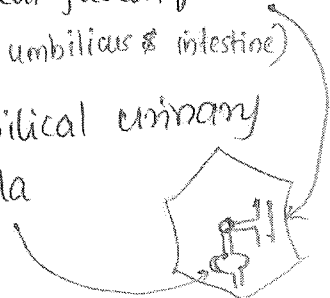 umbilicus & intestine)
ilical urinary
la